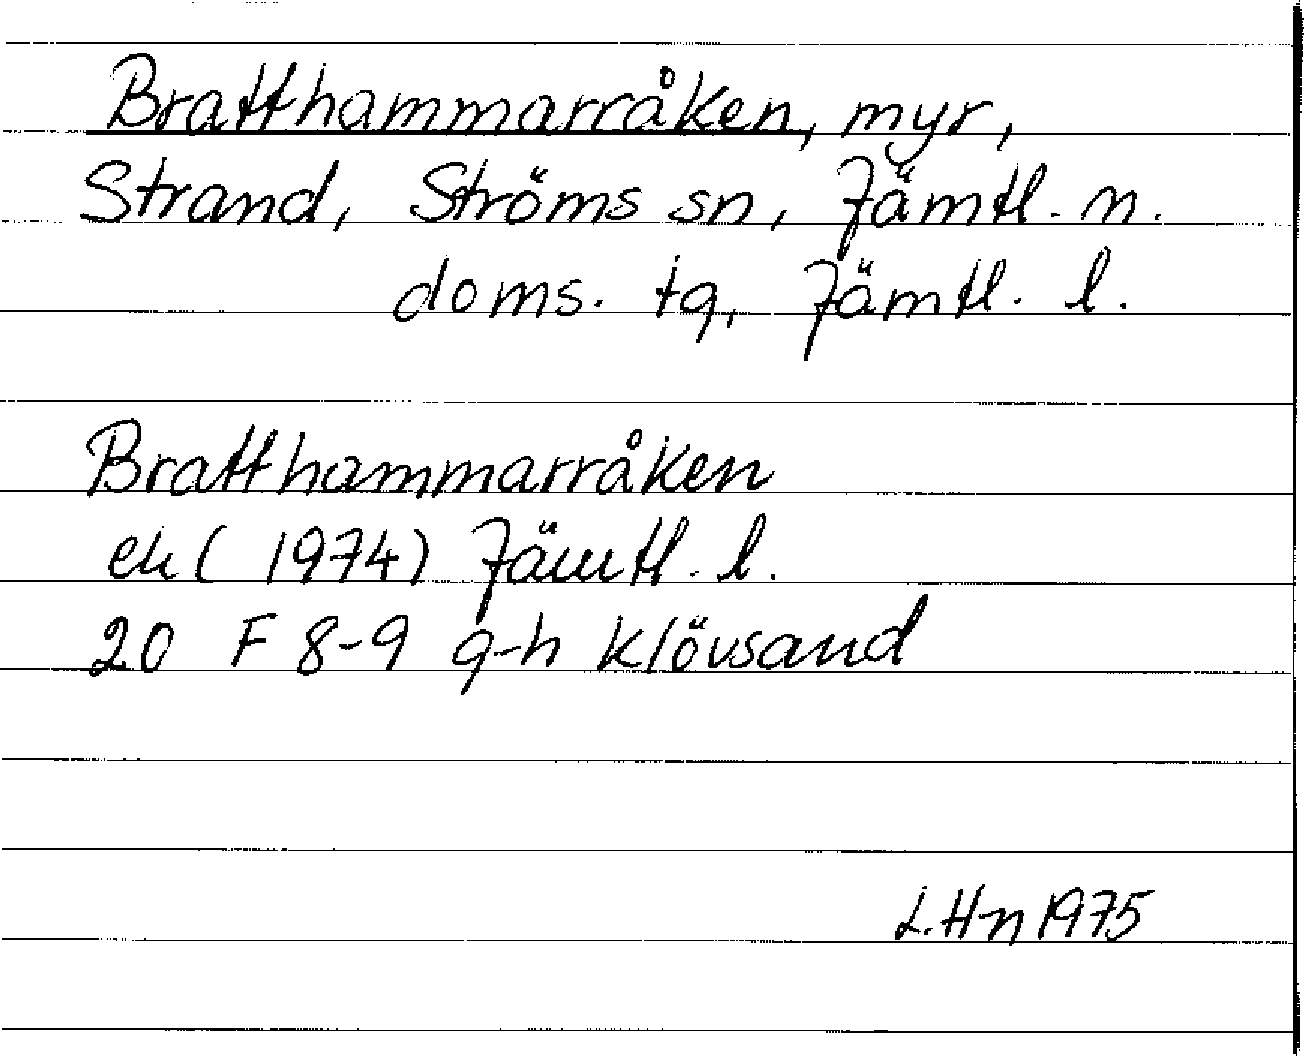 Bratthammarråken, myr,
Strand, Ströms sn, Jämtl. n.
doms. tg, Jämtl. l.
Bratthammarråken
ek (1974) Jämtl. l.
20 F 8-9 g-h Klövsand
L.Hn 1975